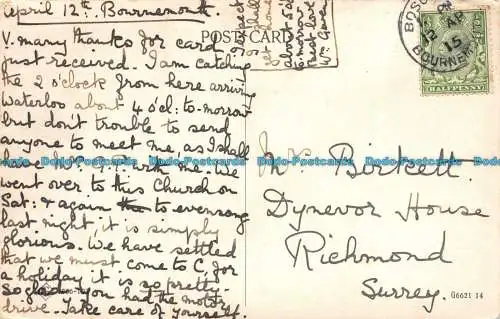 April 12th. Bournemouth.
V. many thanks for card
just received. I am catching
the 2 o'clock from here arriving
Waterloo about 4 o'cl: to-morrow
but don't trouble to send
anyone to meet me, as I shall
have Mr. G. with me. We
went over to this Church on
Sat: & again to evensong
last night, it is simply
glorious. We have settled
that we must come to C. for
a holiday it is so pretty.
So glad you had the motor
drive. Take care of yourself.
I expect
shall
get home
about 5 o'c
to-morrow
Best love
POST CARD
BOSC
12 AP
15
BOURNEM
HALFPENNY
Mrs Birkett
Dynevor House
Richmond
Surrey.
G6621 14
Dodo-Postcards Dodo-Postcards Dodo-Postcards Dodo-Postcards